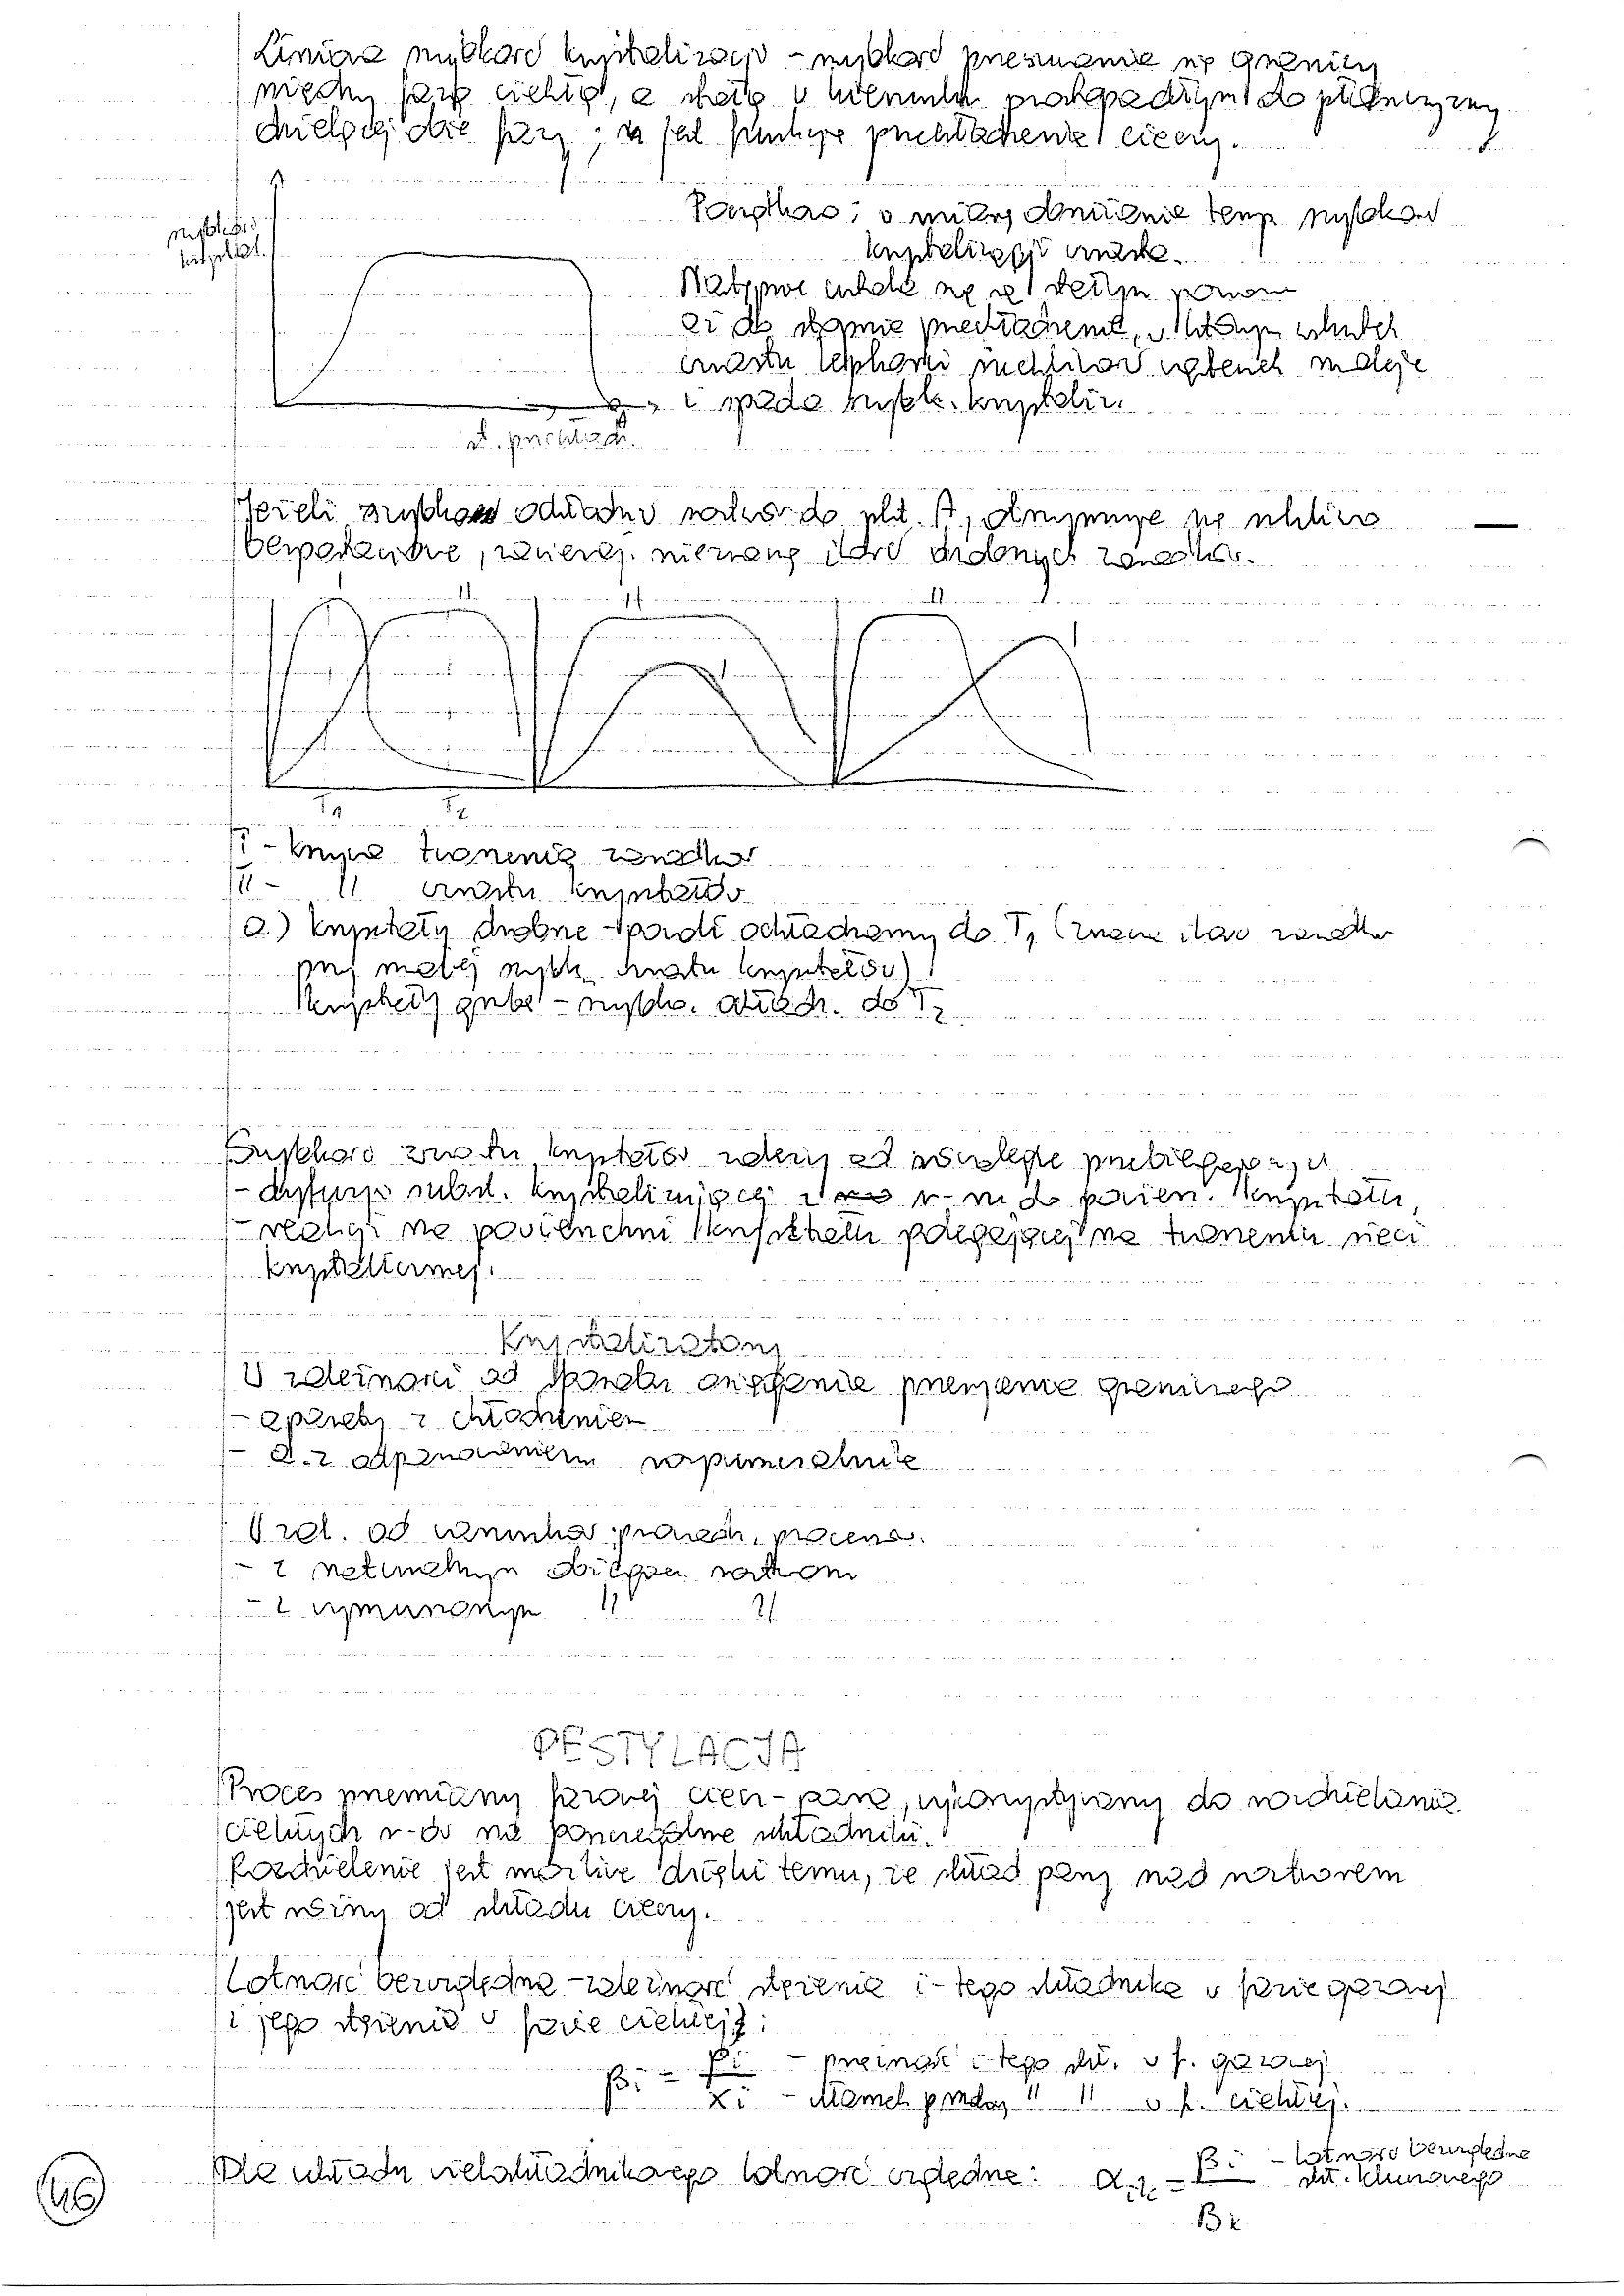 Liniowa szybkość krystalizacji – szybkość przesuwania się granicy
między fazą ciekłą, a stałą w kierunku prostopadłym do płaszczyzny
dzielącej obie fazy; jest funkcją przechłodzenia cieczy.
szybkość
krystal.
Początkowo; w miarę obniżania temp. szybkość
krystalizacji wzrasta.
Następnie ustala się na stałym poziomie
aż do stopnia przechłodzenia, w którym wskutek
wzrostu lepkości ruchliwość cząstek maleje
i spada szybk. krystaliz.
st. przechłodz.
Jeżeli szybkość odkładu roztworu do pkt. A, otrzymuje się szkliwo
bezpostaciowe, zawieraj. nieznaną ilość drobnych zarodków.
I II II I II I
T1 T2
I – krzywa tworzenia zarodków
II – " wzrostu kryształów
a) kryształy drobne – powoli ochładzamy do T1 (znaczna ilość zarodków
przy małej szybk. wzrostu kryształów)
kryształy grube – szybko. ochładz. do T2
Szybkość wzrostu kryształów zależy od równolegle przebiegających
– dyfuzji subst. krystalizującej z r-ru do powierz. kryształu,
– reakcji na powierzchni kryształu polegającej na tworzeniu sieci
krystalicznej.
Krystalizatory
W zależności od sposobu osiągania przesycenia granicznego
– aparaty z chłodzeniem
– a. z odparowaniem rozpuszczalnika
W zal. od warunków prowadz. procesu.
– z naturalnym obiegiem roztworu
– z wymuszonym " "
DESTYLACJA
Proces przemiany fazowej ciecz – para, wykorzystywany do rozdzielania
ciekłych r-ów na poszczególne składniki.
Rozdzielenie jest możliwe dzięki temu, że skład pary nad roztworem
jest różny od składu cieczy.
Lotność bezwzględna – zależność stężenia i-tego składnika w fazie gazowej
i jego stężenia w fazie ciekłej:
βi = pi – prężność i-tego skł. w f. gazowej
xi – ułamek " " w f. ciekłej.
Dla układu wieloskładnikowego lotność względna: αik = βi – lotność bezwzględna
skł. kluczowego
βk
46